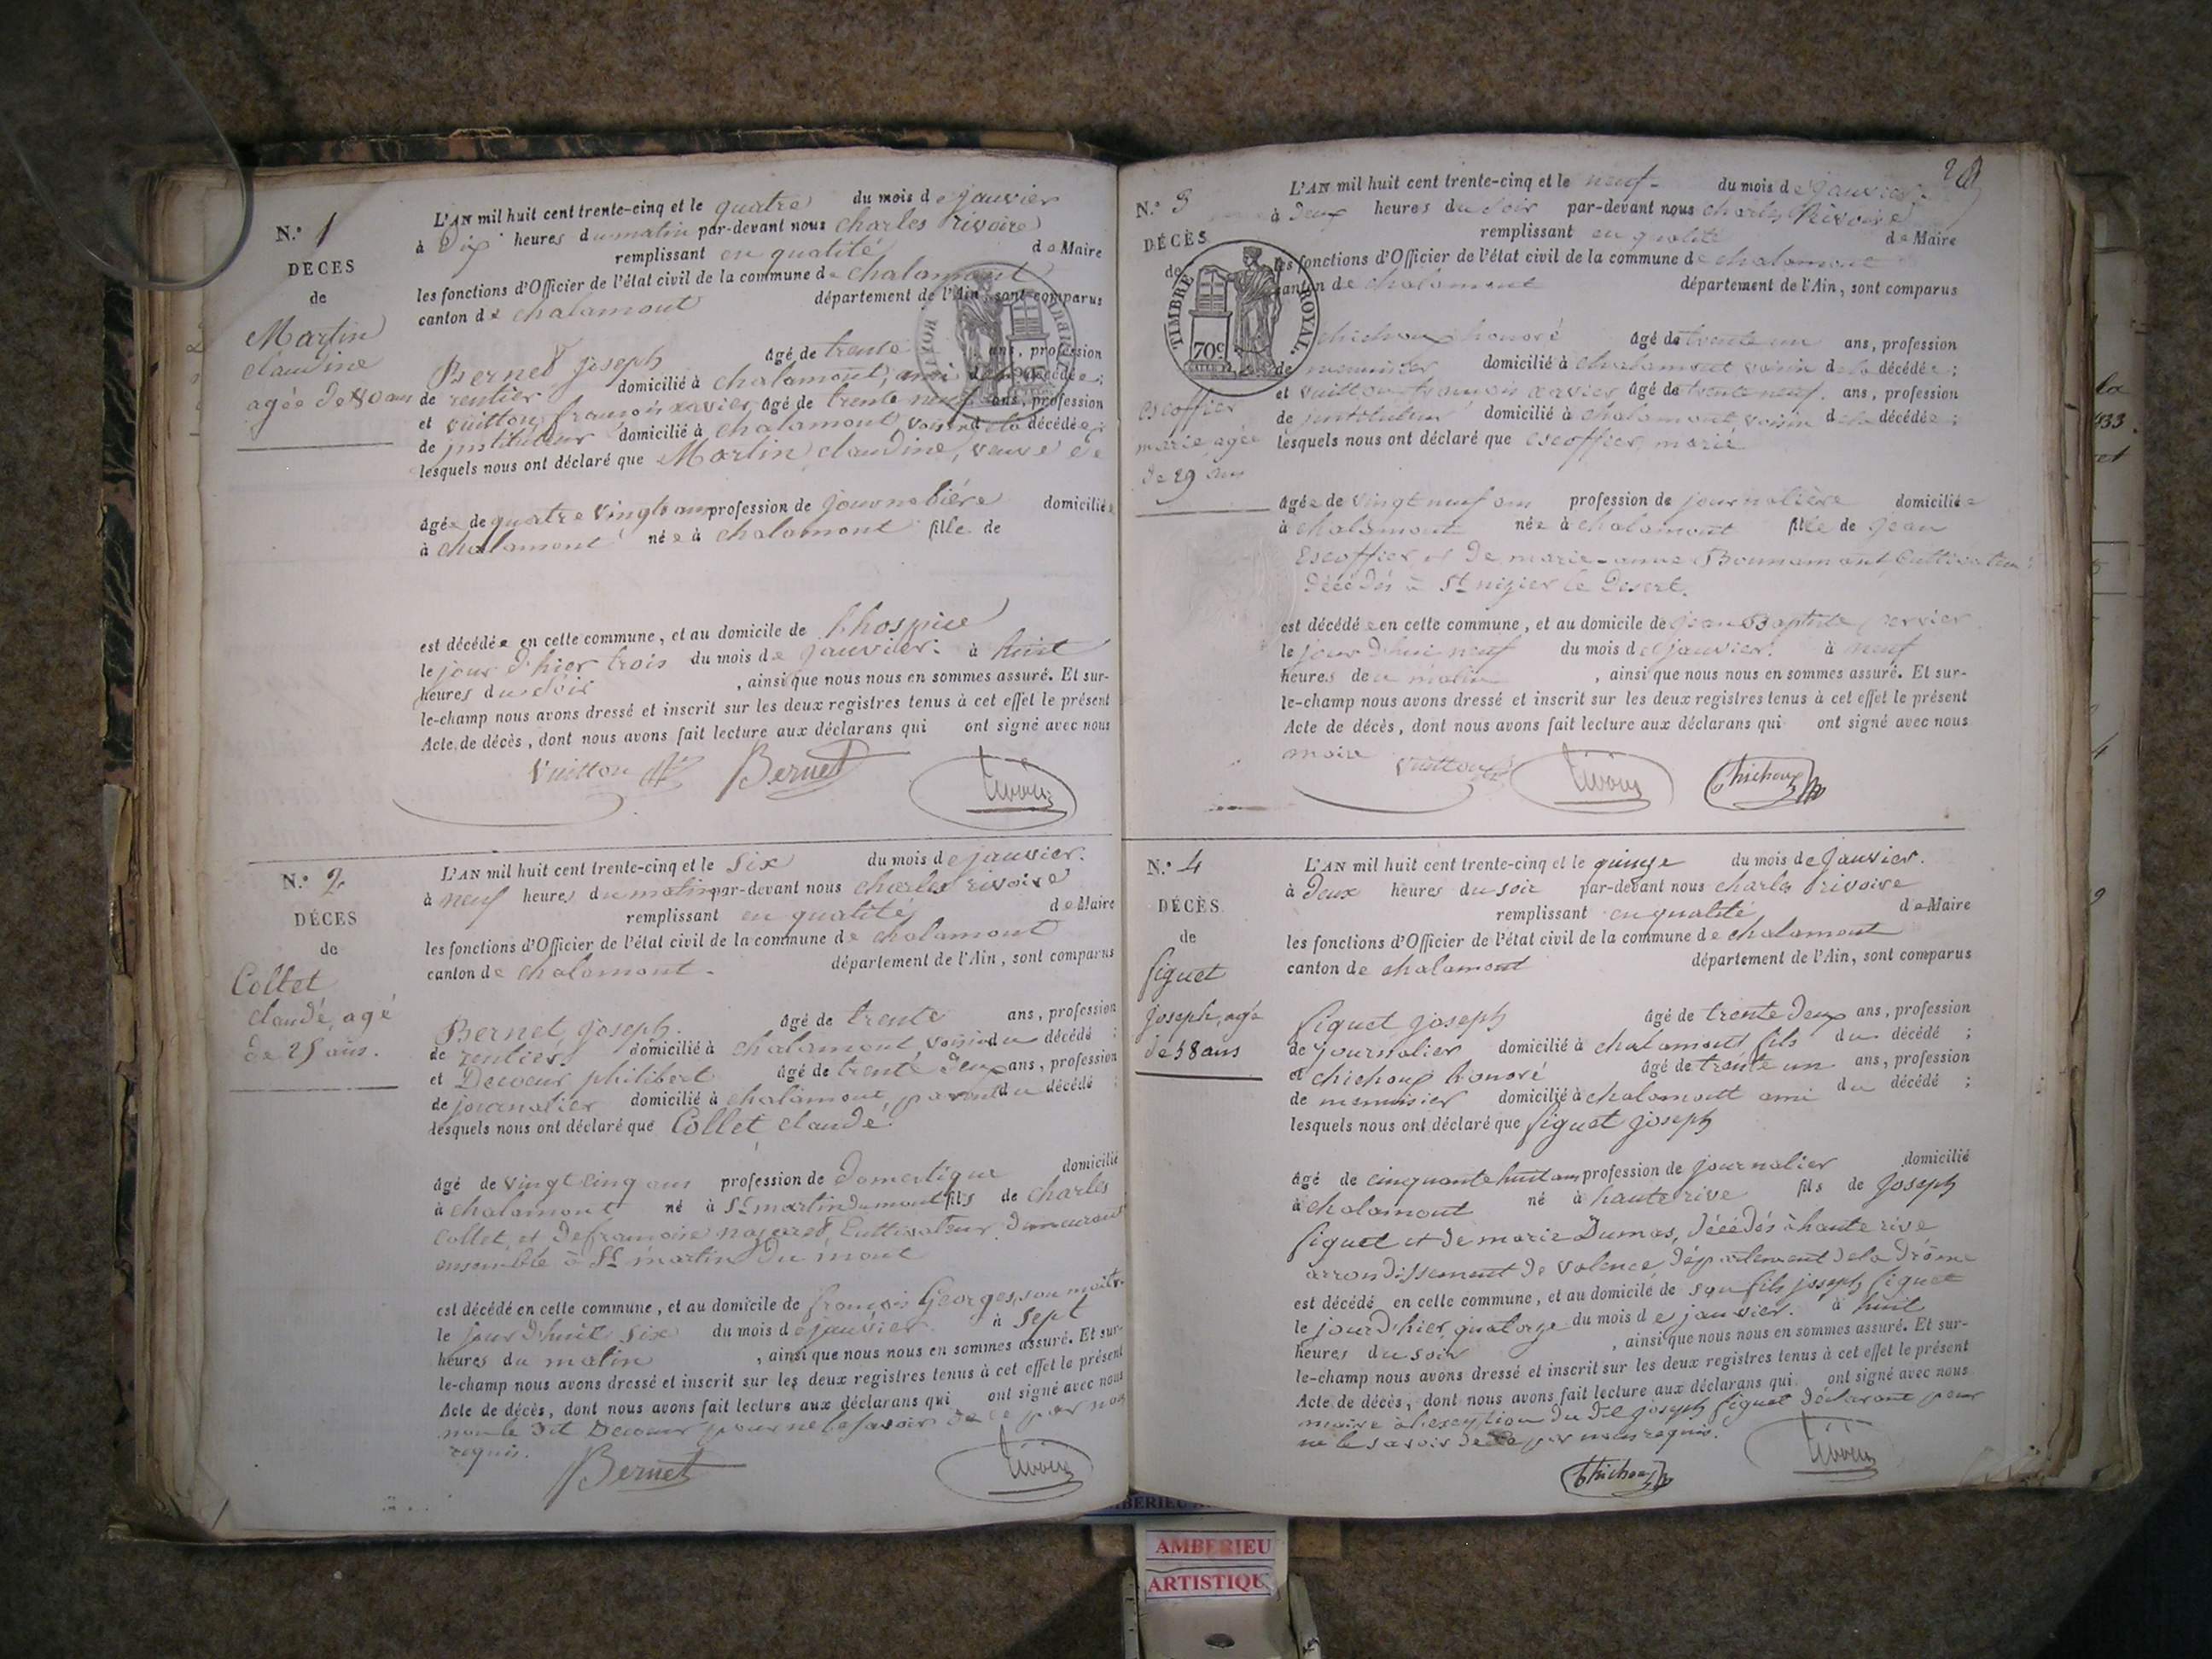 N.° 1
DECES
de
Martin
claudine
agée de 80 ans
L'AN mil huit cent trente-cinq et le quatre du mois de janvier
à Dix heures du matin par-devant nous charles rivoire
remplissant en qualité de Maire
les fonctions d'Officier de l'état civil de la commune de chalamont
canton de chalamont département de l'Ain, sont comparus
Bernet joseph âgé de trente ans, profession
de rentier domicilié à chalamont, ami de la décédée;
et vuitton françois xavier âgé de trente neuf ans, profession
de jnstituteur domicilié à chalamont, voisin de la décédée;
lesquels nous ont déclaré que Martin claudine, veuve de
âgée de quatre vingts ans profession de journalière domiciliée
à chalamont née à chalamont fille de
est décédée en cette commune, et au domicile de l'hospice
le jour d'hier trois du mois de janvier. à huit
heures du soir, ainsi que nous nous en sommes assuré. Et sur-
le-champ nous avons dressé et inscrit sur les deux registres tenus à cet effet le présent
Acte de décès, dont nous avons fait lecture aux déclarans qui ont signé avec nous
Vuitton Bernet Rivoire
N.° 2
DÉCES
de
Collet
claude, agé
de 25 ans.
L'AN mil huit cent trente-cinq et le six du mois de janvier.
à neuf heures du matin par-devant nous charles rivoire
remplissant en qualité de Maire
les fonctions d'Officier de l'état civil de la commune de chalamont
canton de chalamont. département de l'Ain, sont comparus
Bernet joseph. âgé de trente ans, profession
de rentier domicilié à chalamont, voisin du décédé ;
et Decoeur philibert âgé de trente deux ans, profession
de journalier domicilié à chalamont, parent du décédé ;
lesquels nous ont déclaré que Collet claude.
âgé de vingt cinq ans profession de domestique domicilié
à chalamont né à St martin du mont fils de charles
Collet et de françoise Cultivateur demeurant
ensemble à St martin du mont
est décédé en cette commune, et au domicile de françois Georges, son maitre
le jour d'huit six du mois de janvier. à sept
heures du matin, ainsi que nous nous en sommes assuré. Et sur-
le-champ nous avons dressé et inscrit sur les deux registres tenus à cet effet le présent
Acte de décès, dont nous avons fait lecture aux déclarans qui ont signé avec nous
non le dit Decoeur pour ne le savoir de ce par nous
requis.
Bernet Rivoire
20
N.° 3
DÉCÈS
de
TIMBRE ROYAL.
70c
escoffier
marie, agée
de 29 ans
L'AN mil huit cent trente-cinq et le neuf. du mois de janvier.
à Deux heures du soir par-devant nous charles Rivoire
remplissant en qualité de Maire
les fonctions d'Officier de l'état civil de la commune de chalamont
canton de chalamont département de l'Ain, sont comparus
chichoux honoré âgé de trente un ans, profession
de menuisier domicilié à chalamont voisin de la décédée ;
et vuitton françois xavier âgé de trente neuf. ans, profession
de jnstituteur domicilié à chalamont, voisin de la décédée ;
lesquels nous ont déclaré que escoffier marie
âgée de vingt neuf ans profession de journalière domiciliée
à chalamont née à chalamont fille de jean
Escoffier et de marie-anne Bonnamant Cultivateurs
décédés à St nizier le Desert.
est décédée en cette commune, et au domicile de jean Baptiste
le jour d'hui neuf du mois de janvier. à neuf
heures du matin, ainsi que nous nous en sommes assuré. Et sur-
le-champ nous avons dressé et inscrit sur les deux registres tenus à cet effet le présent
Acte de décès, dont nous avons fait lecture aux déclarans qui ont signé avec nous
maire Vuitton Rivoire Chichoux
N.° 4
DÉCÈS
de
figuet
joseph, agé
de 58 ans
L'AN mil huit cent trente-cinq et le quinze du mois de janvier.
à deux heures du soir par-devant nous charles rivoire
remplissant en qualité de Maire
les fonctions d'Officier de l'état civil de la commune de chalamont
canton de chalamont département de l'Ain, sont comparus
figuet joseph âgé de trente deux ans, profession
de journalier domicilié à chalamont fils du décédé ;
et chichoux honoré âgé de trente un ans, profession
de menuisier domicilié à chalamont ami du décédé ;
lesquels nous ont déclaré que figuet joseph
âgé de cinquante huit ans profession de journalier domicilié
à chalamont né à hauterive fils de joseph
figuet et de marie Dumas, décédés à haute rive
arrondissement de valence, département de la Drôme
est décédé en cette commune, et au domicile de son fils joseph figuet
le jour d'hier quatorze du mois de janvier. à huit
heures du soir, ainsi que nous nous en sommes assuré. Et sur-
le-champ nous avons dressé et inscrit sur les deux registres tenus à cet effet le présent
Acte de décès, dont nous avons fait lecture aux déclarans qui ont signé avec nous
maire à l'exception du dit joseph figuet déclarant pour
ne le savoir de ce par nous requis.
Chichoux Rivoire
AMBERIEU
ARTISTIQUE